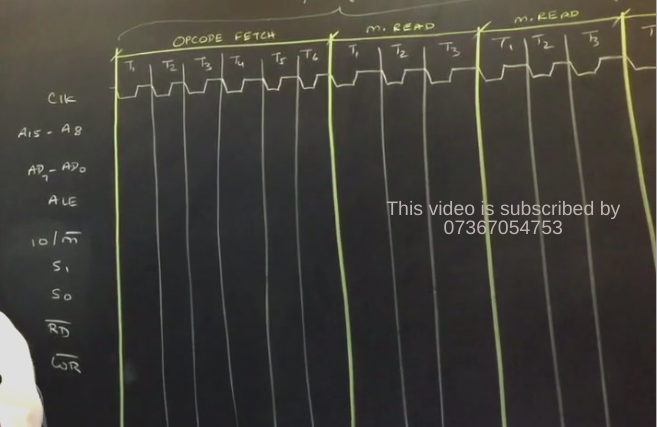 OPCODE FETCH M. READ M. READ
T₁ T₂ T₃ T₄ T₅ T₆ T₁ T₂ T₃ T₁ T₂ T₃ T
Clk
A15 - A8
AD7 - AD0
ALE
IO/M̅
S₁
S₀
R̅D̅
W̅R̅
This video is subscribed by
07367054753